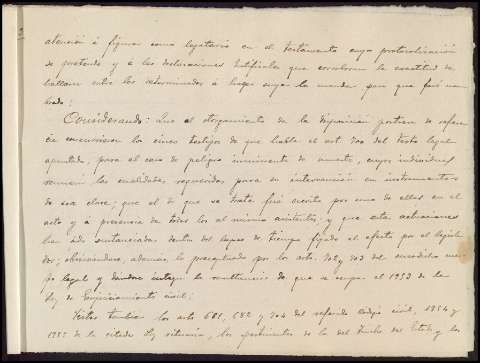 atención á figurar como legatario en el testamento cuya protocolización
se pretende y á las declaraciones testificales que corroboran la exactitud de
hallarse entre los determinados á hacer suya la manda para que fué nom
brado;
Considerando: Que al otorgamiento de la disposición postrera de referen
cia concurrieron los cinco testigos de que habla el art. 700 del texto legal
apuntado, para el caso de peligro inminente de muerte, cuyos individuos
reunían las cualidades requeridas para su intervención en instrumentos
de esa clase; que el de que se trata fué escrito por uno de ellos en el
acto y á presencia de todos los al mismo asistentes; y que estas actuaciones
han sido sustanciadas dentro del lapso de tiempo fijado al efecto por el legisla
dor; observándose, además, lo preceptuado por los arts. 702 y 703 del susodicho cuer
po legal y dándose la que se ocupa el 1953 de la
Ley de Enjuiciamiento civil;
Vistos también los arts 681, 682 y 704 del referido Código civil, 1954 y
1955 de la citada Ley rituaria, los pertinentes de la del Timbre del Estado y los